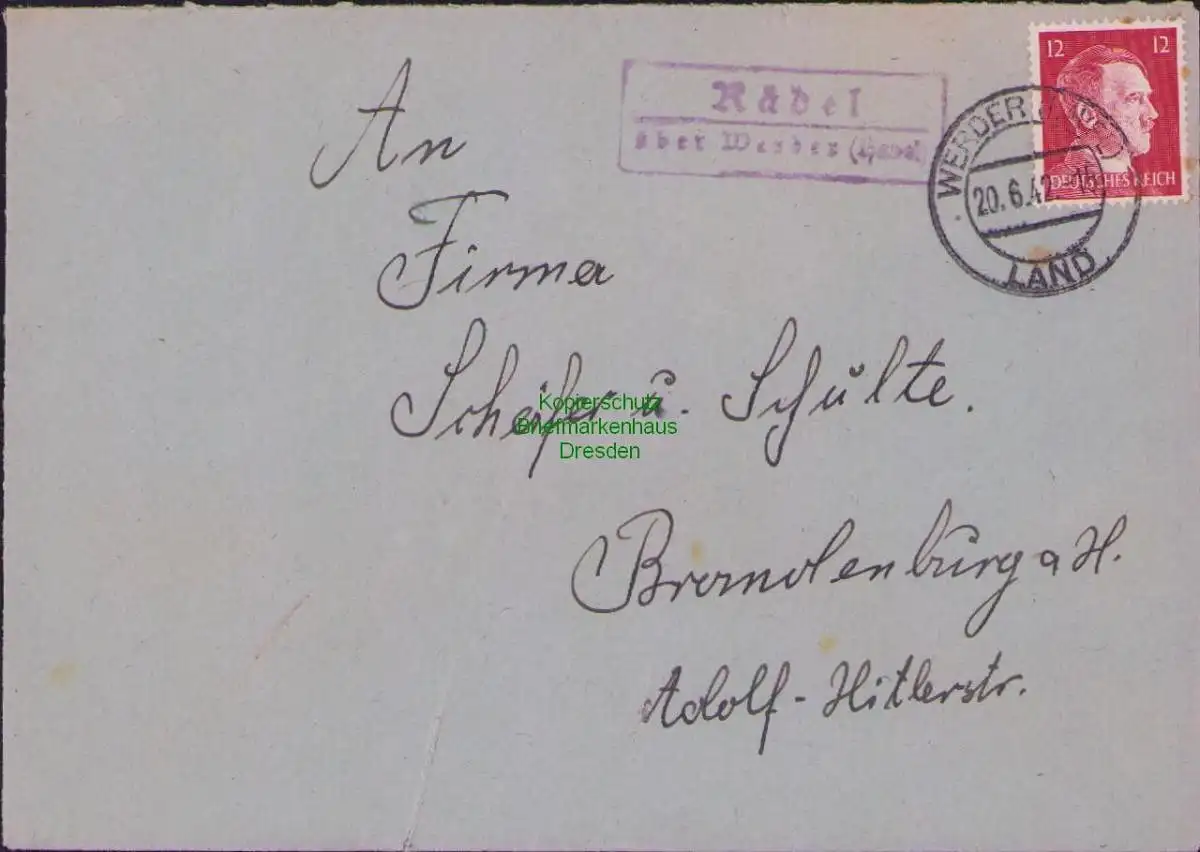 Rädel
über Werder (Havel)
12 12
DEUTSCHES REICH
WERDER (HAVEL)
20.6.42
LAND
An
Firma
Schäfer u. Schülte.
Kopierschutz
Briefmarkenhaus
Dresden
Brandenburg a H.
Adolf-Hitlerstr.